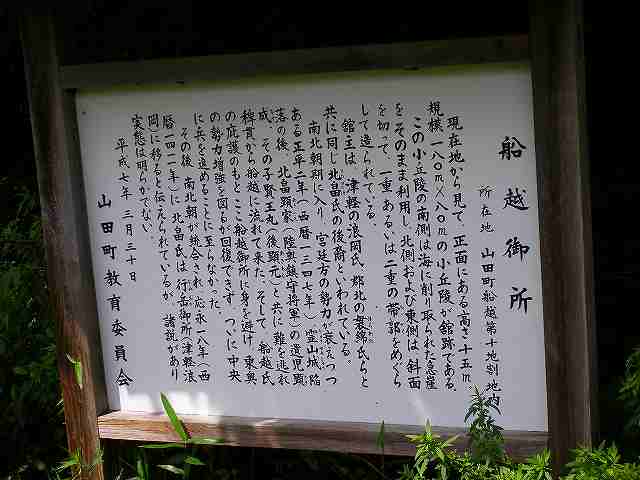 船越御所
所在地 山田町船越第十地割地内
現在地から見て、正面にある高さ十五m、
規模一八〇m×八〇mの小丘陵が舘跡である。
この小丘陵の南側は海に削り取られた急崖
をそのまま利用し、北側および東側は、斜面
を切って、一重あるいは二重の帯郭をめぐら
して造られている。
舘主は、津軽の浪岡氏、郡北の袰綿氏らと
共に同じ北畠氏の後裔といわれている。
南北朝期に入り、宮廷方の勢力が衰えつつ
ある正平二年(西暦一三四七年)霊山城陥
落の後、北畠顕家(陸奥鎮守将軍)の遺児顕
成、その子賢王丸(後顕元)と共に難を逃れ
稗貫から船越に流れて来た。そして、船越氏
の庇護のもとここ船越御所に身を避け、東奥
の勢力増強を図るが回復できず、ついに中央
に兵を進めることに至らなかった。
その後、南北朝が統合され、応永一八年(西
暦一四一一年)に北畠氏は行岳御所(津軽浪
岡)に移ると伝えられているが、諸説があり
実態は明らかでない。
平成七年 三月三十日
山田町教育委員会